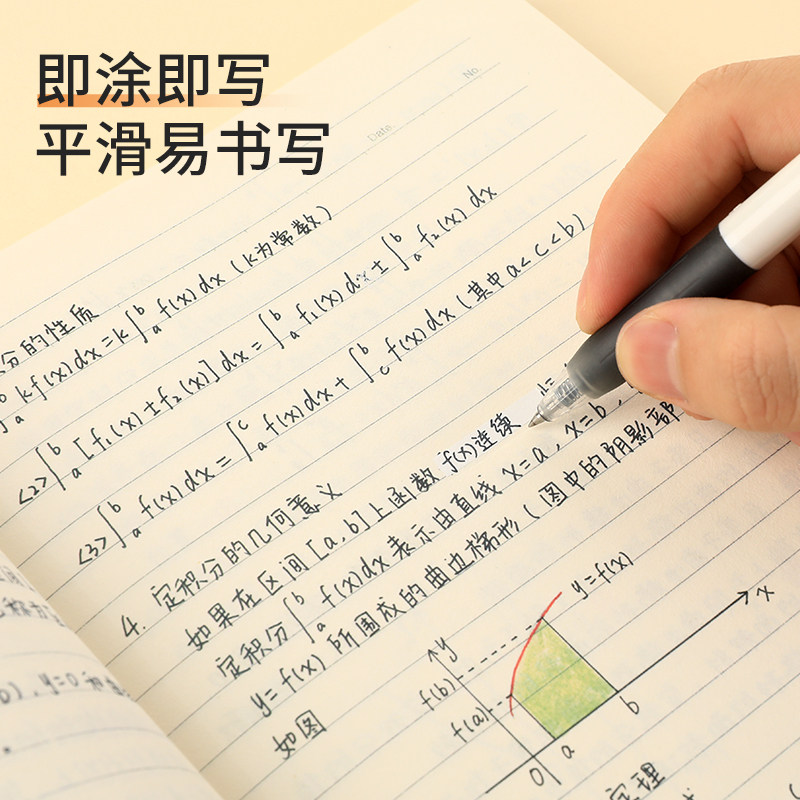 即涂即写
平滑易书写
No.
Date.
分的性质
∫ₐᵇ kf(x)dx=k∫ₐᵇ f(x)dx (k为常数)
<2>∫ₐᵇ[f₁(x)±f₂(x)]dx=∫ₐᵇ f₁(x)dx±∫ₐᵇ f₂(x)dx
<3>∫ₐᵇ f(x)dx=∫ₐᶜ f(x)dx+∫꜀ᵇ f(x)dx (其中a<c<b)
4. 定积分的几何意义
如果在区间[a,b]上函数f(x)连续
定积分∫ₐᵇ f(x)dx表示由直线x=a, x=b,
y=f(x)所围成的曲边梯形(图中的阴影部
如图
y=f(x)
y
x
f(b)
f(a)
0
a
b
定理
y=0